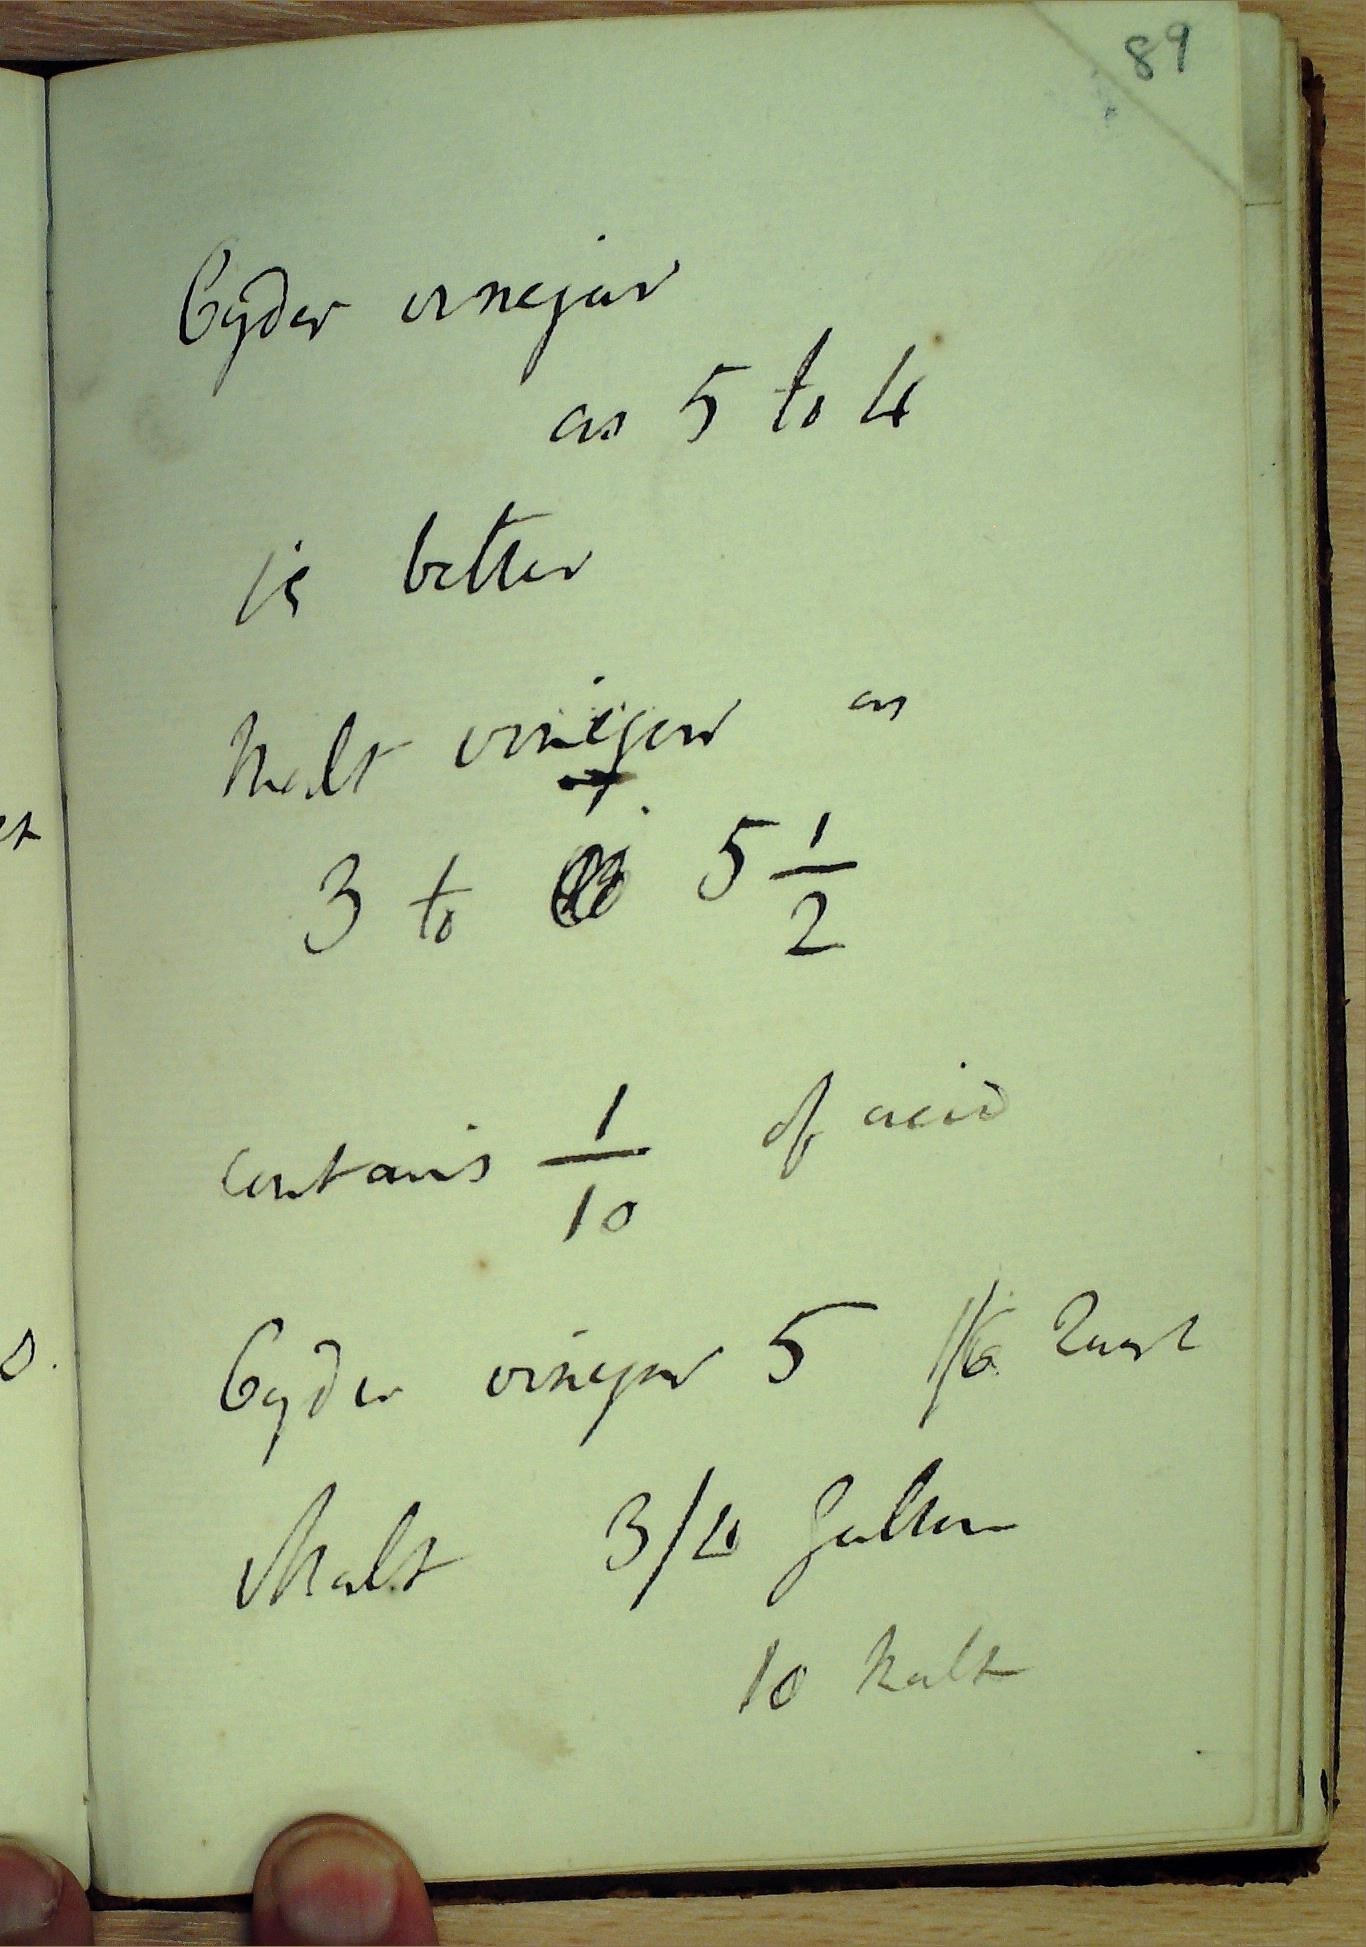 89
Cyder vinegar
as 5 to 4
is better
Malt vinegar as
3 to 5 1/2
contains 1/10 of acid
Cyder vinegar 5 1/6 Quart
Malt 3/4 Gallon
10 Malt